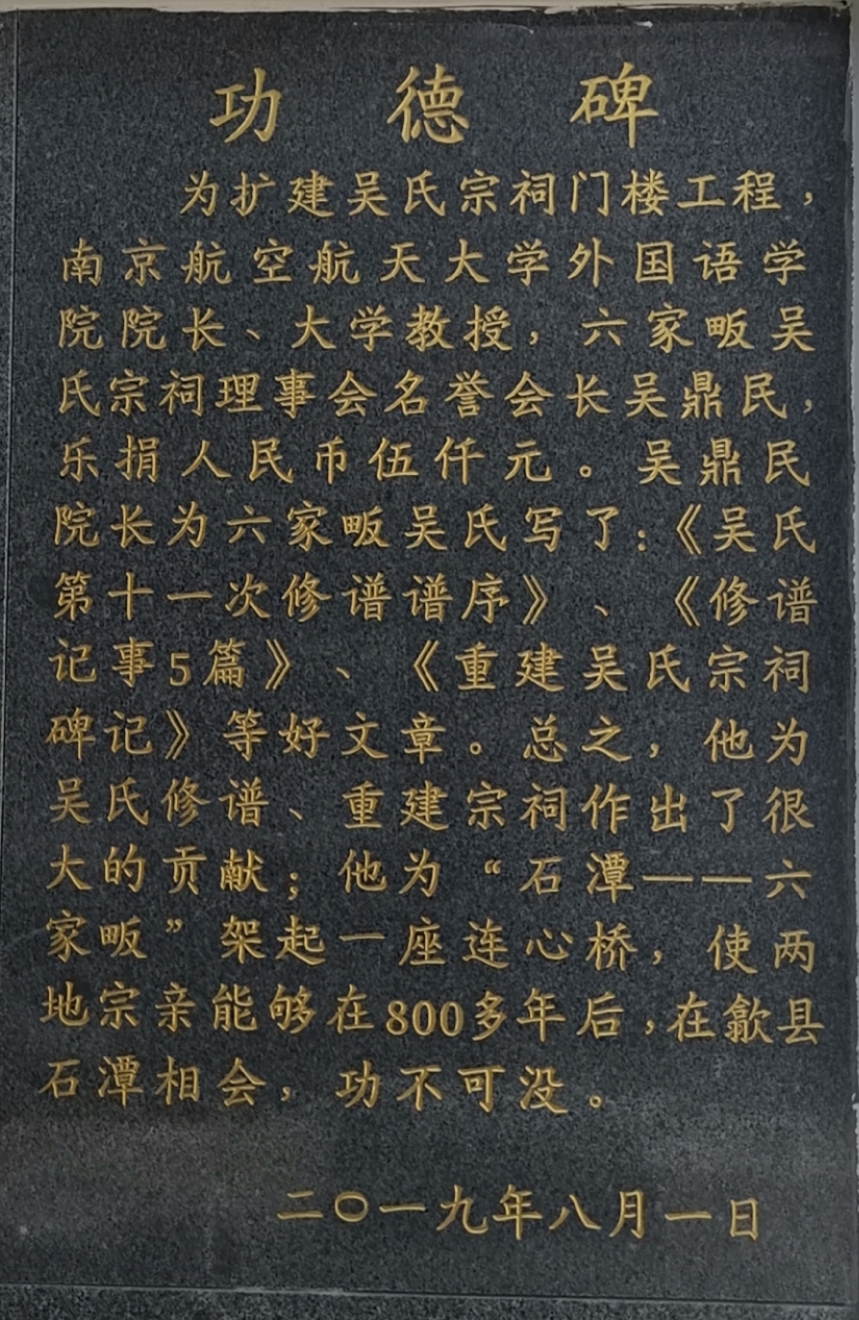 功德碑
为扩建吴氏宗祠门楼工程，
南京航空航天大学外国语学
院院长、大学教授，六家畈吴
氏宗祠理事会名誉会长吴鼎民，
乐捐人民币伍仟元。吴鼎民
院长为六家畈吴氏写了:《吴氏
第十一次修谱谱序》、《修谱
记事5篇》、《重建吴氏宗祠
碑记》等好文章。总之，他为
吴氏修谱、重建宗祠作出了很
大的贡献；他为“石潭——六
家畈”架起一座连心桥，使两
地宗亲能够在800多年后，在歙县
石潭相会，功不可没。
二〇一九年八月一日